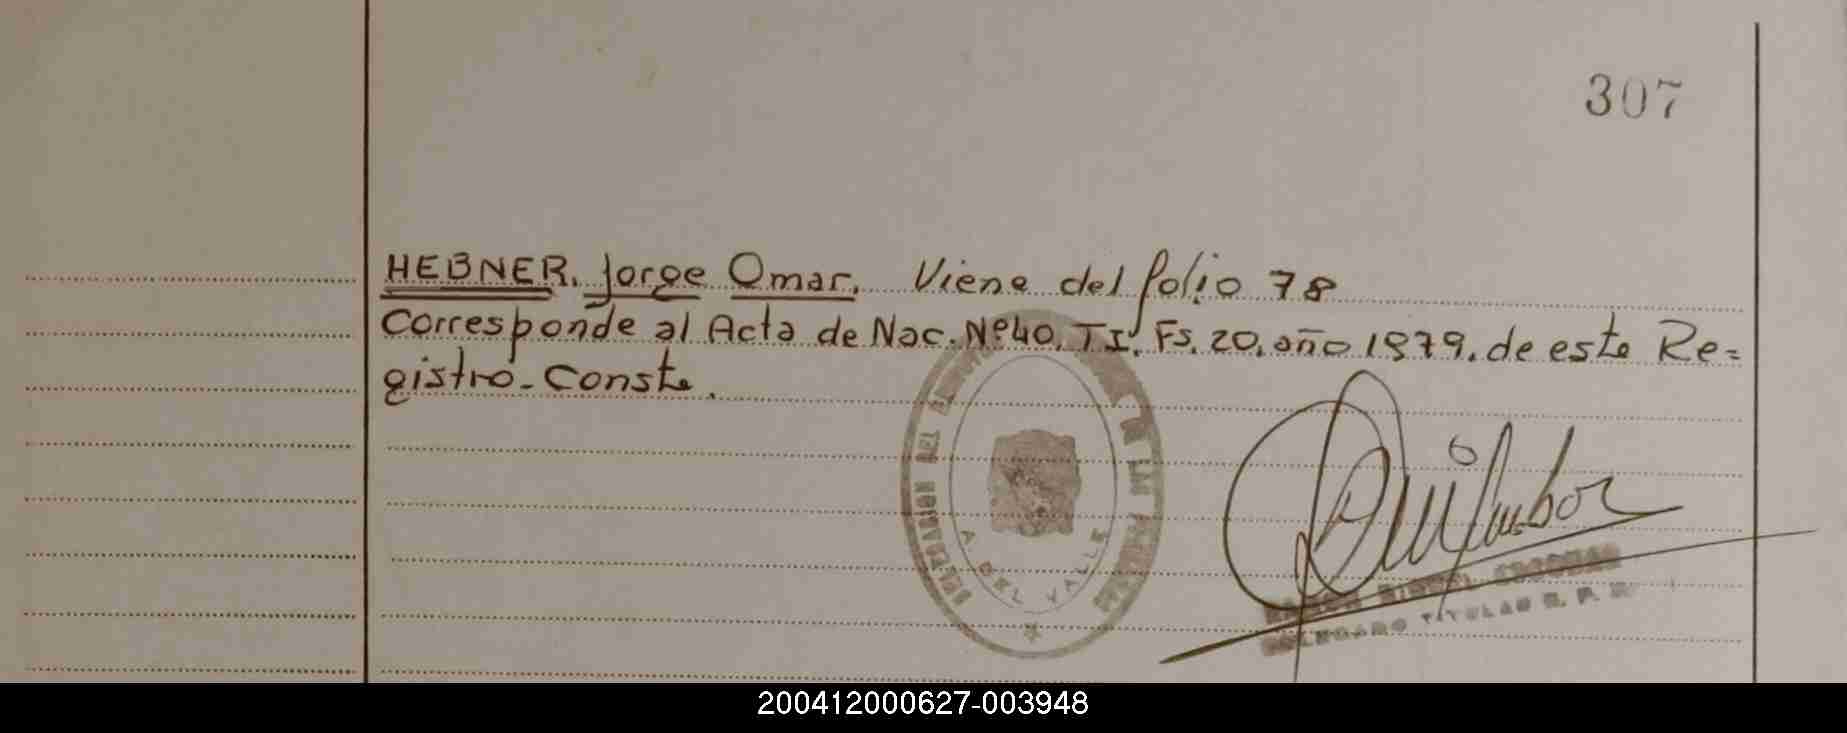 307
HEBNER, Jorge Omar. Viene del folio 78
Corresponde al Acta de Nac. Nº 40, T I. Fs. 20, año 1979, de este Re=
gistro. Conste.
A DEL VALLE
TITULAR
200412000627-003948